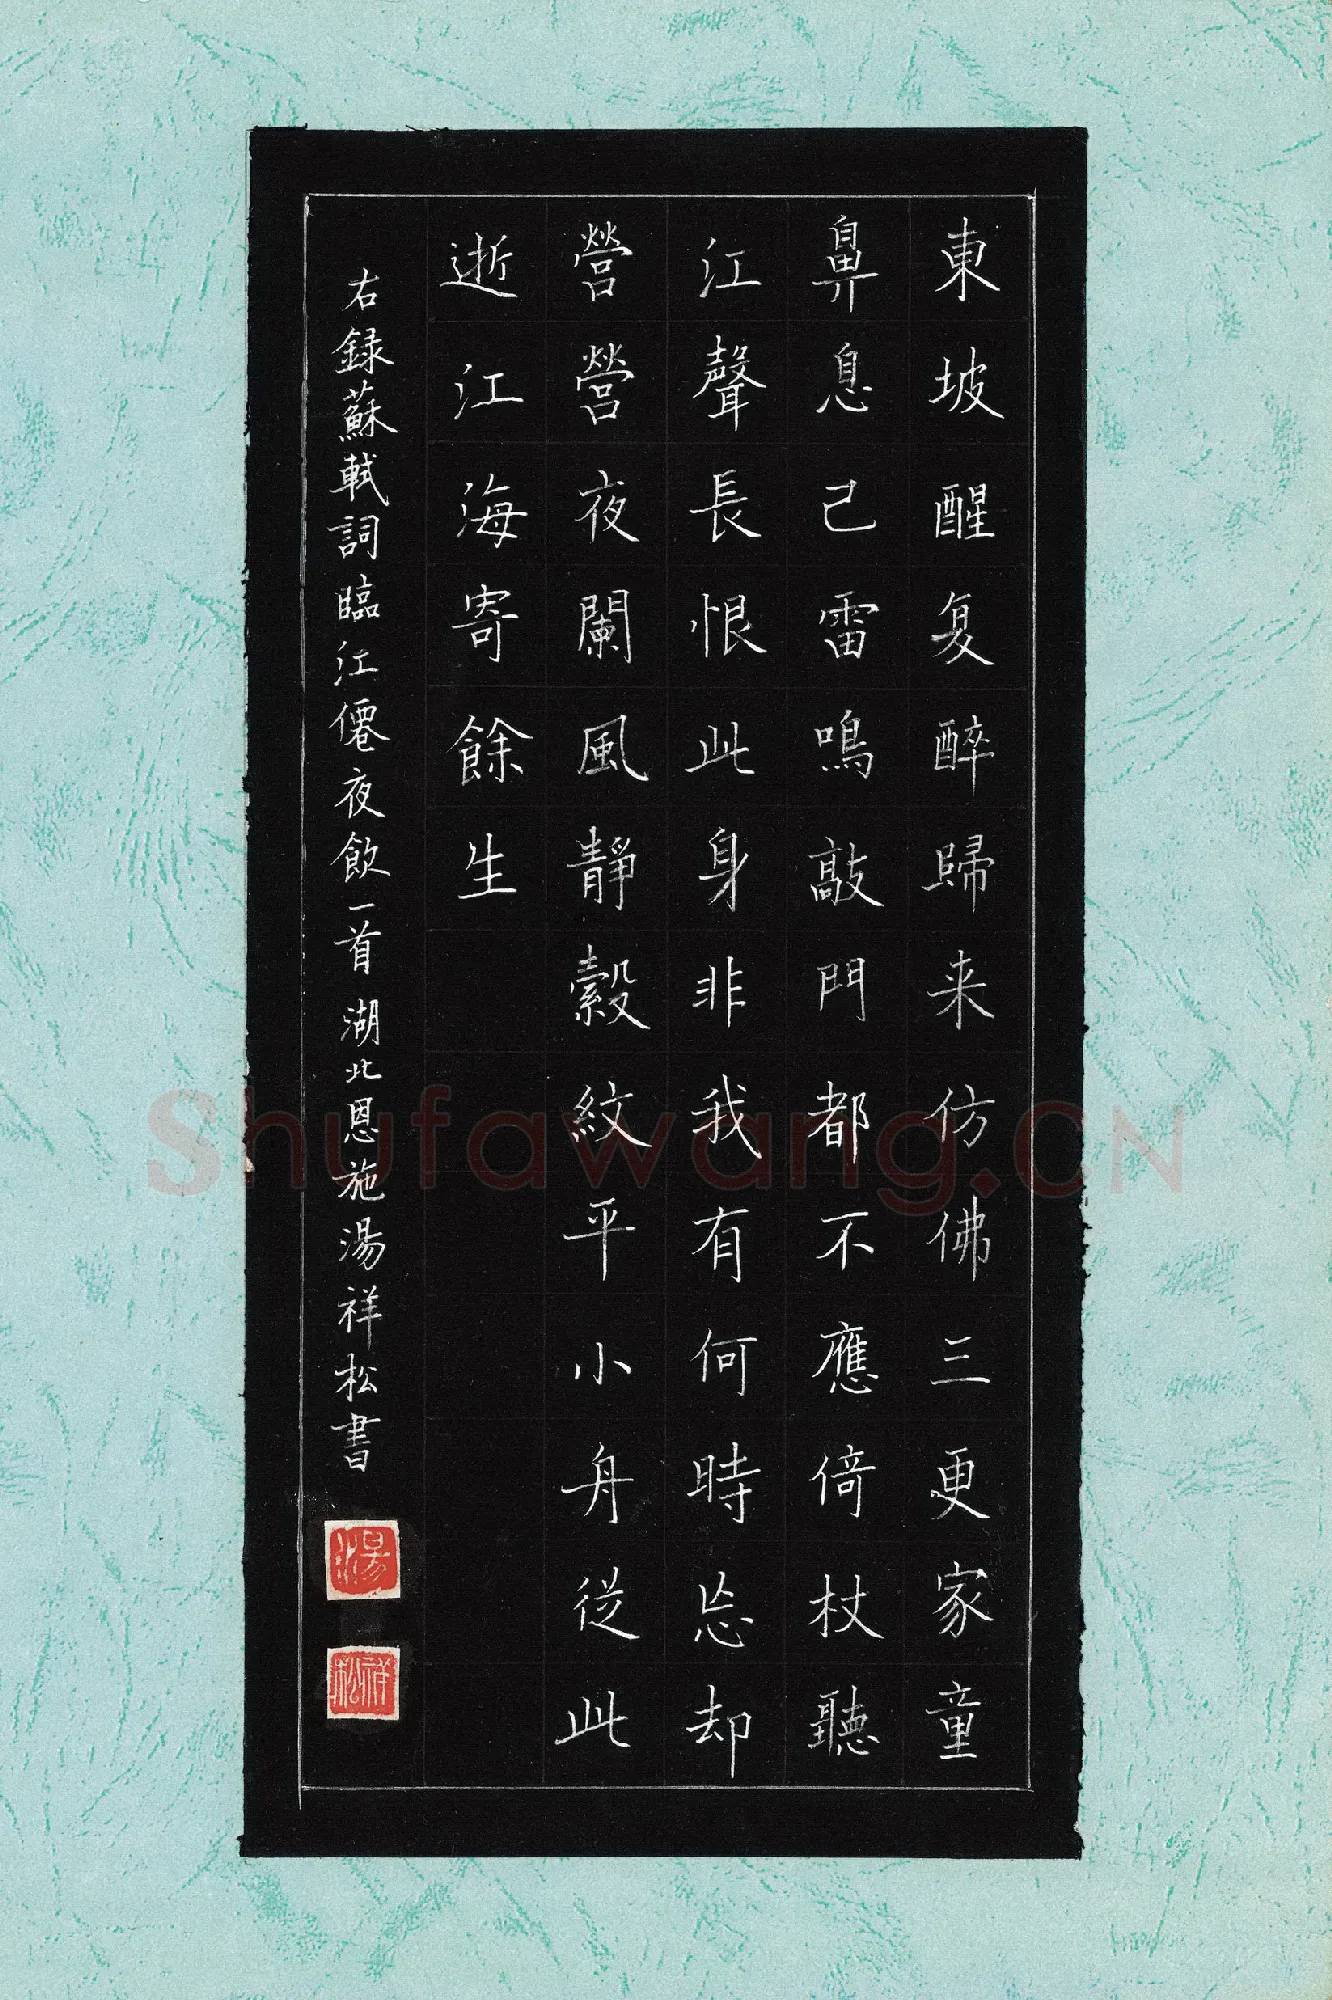 東坡醒复醉歸来仿佛三更家童
鼻息已雷鳴敲門都不應倚杖聽
江聲長恨此身非我有何時忘却
營營夜闌風靜縠紋平小舟從此
逝江海寄餘生
右録蘇軾詞臨江僊夜飲一首湖北恩施湯祥松書
湯
祥松
Shufawang.CN